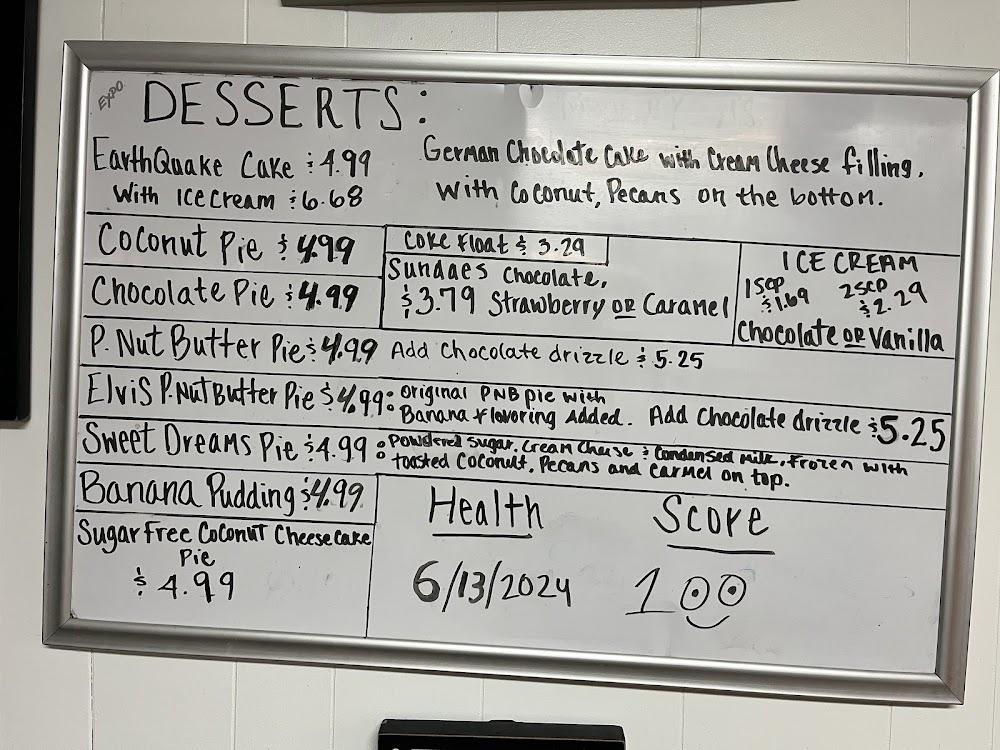 EXPO
DESSERTS:
EarthQuake Cake $4.99
With Ice Cream $6.68
German Chocolate Cake with Cream Cheese filling.
With Coconut, Pecans on the bottom.
Coconut Pie $4.99
Chocolate Pie $4.99
Coke Float $3.29
Sundaes Chocolate,
$3.79 Strawberry or Caramel
ICE CREAM
1 SCP $1.69 2 SCP $2.29
Chocolate or Vanilla
P. Nut Butter Pie $4.99 Add Chocolate drizzle $5.25
Elvis P. Nut Butter Pie $4.99: original PNB pie with
Banana flavoring Added. Add Chocolate drizzle $5.25
Sweet Dreams Pie $4.99: Powdered Sugar, Cream Cheese & Condensed Milk, Frozen with
toasted Coconut, Pecans and Carmel on top.
Banana Pudding $4.99
Sugar Free Coconut Cheesecake
Pie
$4.99
Health Score
6/13/2024 100